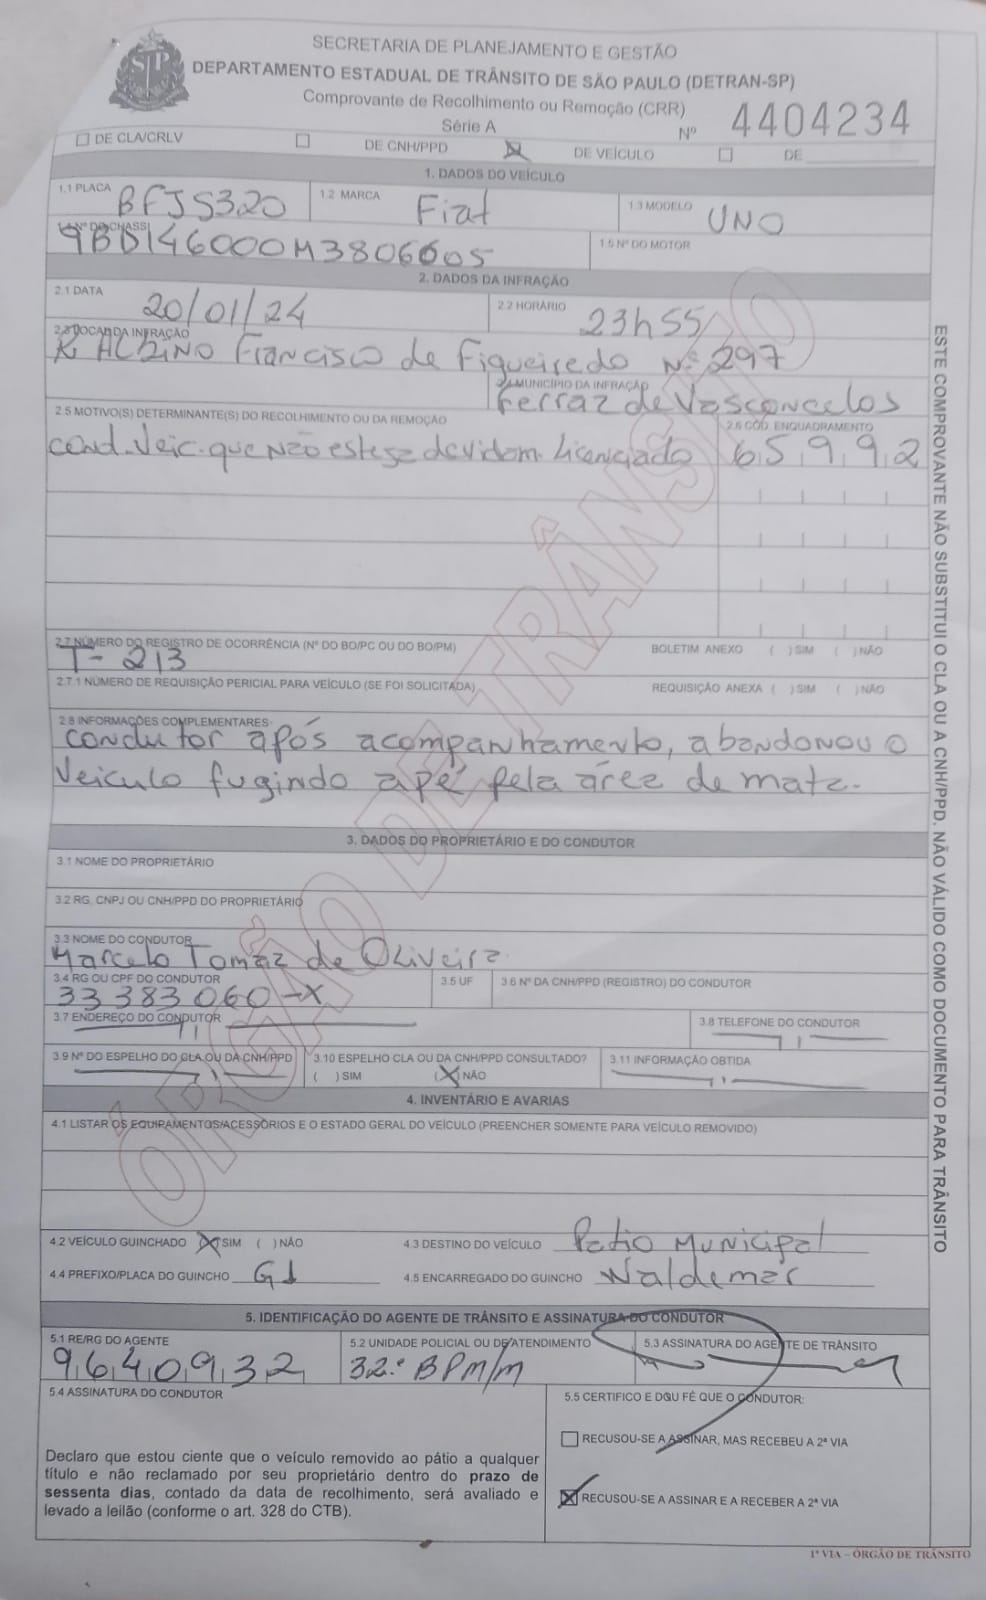 SECRETARIA DE PLANEJAMENTO E GESTÃO
DEPARTAMENTO ESTADUAL DE TRÂNSITO DE SÃO PAULO (DETRAN-SP)
Comprovante de Recolhimento ou Remoção (CRR)
Série A
Nº 4404234
DE CLA/CRLV DE CNH/PPD DE VEÍCULO DE
1. DADOS DO VEÍCULO
1.1 PLACA BFJ5320 1.2 MARCA Fiat 1.3 MODELO UNO
1.4 Nº DO CHASSI 9BD146000M3806605 1.5 Nº DO MOTOR
2. DADOS DA INFRAÇÃO
2.1 DATA 20/01/24 2.2 HORÁRIO 23h55
2.3 LOCAL DA INFRAÇÃO
R ALBINO Francisco de Figueiredo Nº 297
2.4 MUNICÍPIO DA INFRAÇÃO
Ferraz de Vasconcelos
2.5 MOTIVO(S) DETERMINANTE(S) DO RECOLHIMENTO OU DA REMOÇÃO 2.6 CÓD. ENQUADRAMENTO
Cond. Veic. que não esteja devidam. Licenciado 65992
2.7 NÚMERO DO REGISTRO DE OCORRÊNCIA (Nº DO BO/PC OU DO BO/PM) BOLETIM ANEXO ( )SIM ( )NÃO
T-213
2.7.1 NÚMERO DE REQUISIÇÃO PERICIAL PARA VEÍCULO (SE FOI SOLICITADA) REQUISIÇÃO ANEXA ( )SIM ( )NÃO
2.8 INFORMAÇÕES COMPLEMENTARES:
condutor após acompanhamento, abandonou o
veiculo fugindo a pé pela área de mata.
3. DADOS DO PROPRIETÁRIO E DO CONDUTOR
3.1 NOME DO PROPRIETÁRIO
3.2 RG, CNPJ OU CNH/PPD DO PROPRIETÁRIO
3.3 NOME DO CONDUTOR
Marcelo Tomaz de Oliveira
3.4 RG OU CPF DO CONDUTOR 3.5 UF 3.6 Nº DA CNH/PPD (REGISTRO) DO CONDUTOR
33383060-X
3.7 ENDEREÇO DO CONDUTOR 3.8 TELEFONE DO CONDUTOR
3.9 Nº DO ESPELHO DO CLA OU DA CNH/PPD 3.10 ESPELHO CLA OU DA CNH/PPD CONSULTADO? 3.11 INFORMAÇÃO OBTIDA
( )SIM (X)NÃO
4. INVENTÁRIO E AVARIAS
4.1 LISTAR OS EQUIPAMENTOS/ACESSÓRIOS E O ESTADO GERAL DO VEÍCULO (PREENCHER SOMENTE PARA VEÍCULO REMOVIDO)
4.2 VEÍCULO GUINCHADO (X)SIM ( )NÃO 4.3 DESTINO DO VEÍCULO Patio Municipal
4.4 PREFIXO/PLACA DO GUINCHO G1 4.5 ENCARREGADO DO GUINCHO Waldemar
5. IDENTIFICAÇÃO DO AGENTE DE TRÂNSITO E ASSINATURA DO CONDUTOR
5.1 RE/RG DO AGENTE 5.2 UNIDADE POLICIAL OU DE ATENDIMENTO 5.3 ASSINATURA DO AGENTE DE TRÂNSITO
9640932 32.º BPM/M
5.4 ASSINATURA DO CONDUTOR
5.5 CERTIFICO E DOU FÉ QUE O CONDUTOR:
RECUSOU-SE A ASSINAR, MAS RECEBEU A 2ª VIA
X RECUSOU-SE A ASSINAR E A RECEBER A 2ª VIA
Declaro que estou ciente que o veículo removido ao pátio a qualquer
título e não reclamado por seu proprietário dentro do prazo de
sessenta dias, contado da data de recolhimento, será avaliado e
levado a leilão (conforme o art. 328 do CTB).
1ª VIA – ÓRGÃO DE TRÂNSITO
ESTE COMPROVANTE NÃO SUBSTITUI O CLA OU A CNH/PPD. NÃO VÁLIDO COMO DOCUMENTO PARA TRÂNSITO
ÓRGÃO DE TRÂNSITO